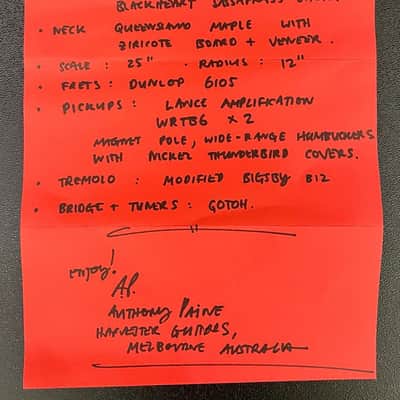 BLACKHEART SASSAFRAS
• NECK QUEENSLAND MAPLE WITH
ZIRICOTE BOARD + VENEER.
• SCALE: 25" . RADIUS: 12"
• FRETS: DUNLOP 6105
• PICKUPS: LANCE AMPLIFICATION
WRTBG X 2
MAGNET POLE, WIDE-RANGE HUMBUCKERS
WITH NICKEL THUNDERBIRD COVERS.
• TREMOLO: MODIFIED BIGSBY B12
• BRIDGE + TUNERS: GOTOH.
enjoy!
A.P.
ANTHONY PAINE
HARVESTER GUITARS,
MELBOURNE AUSTRALIA